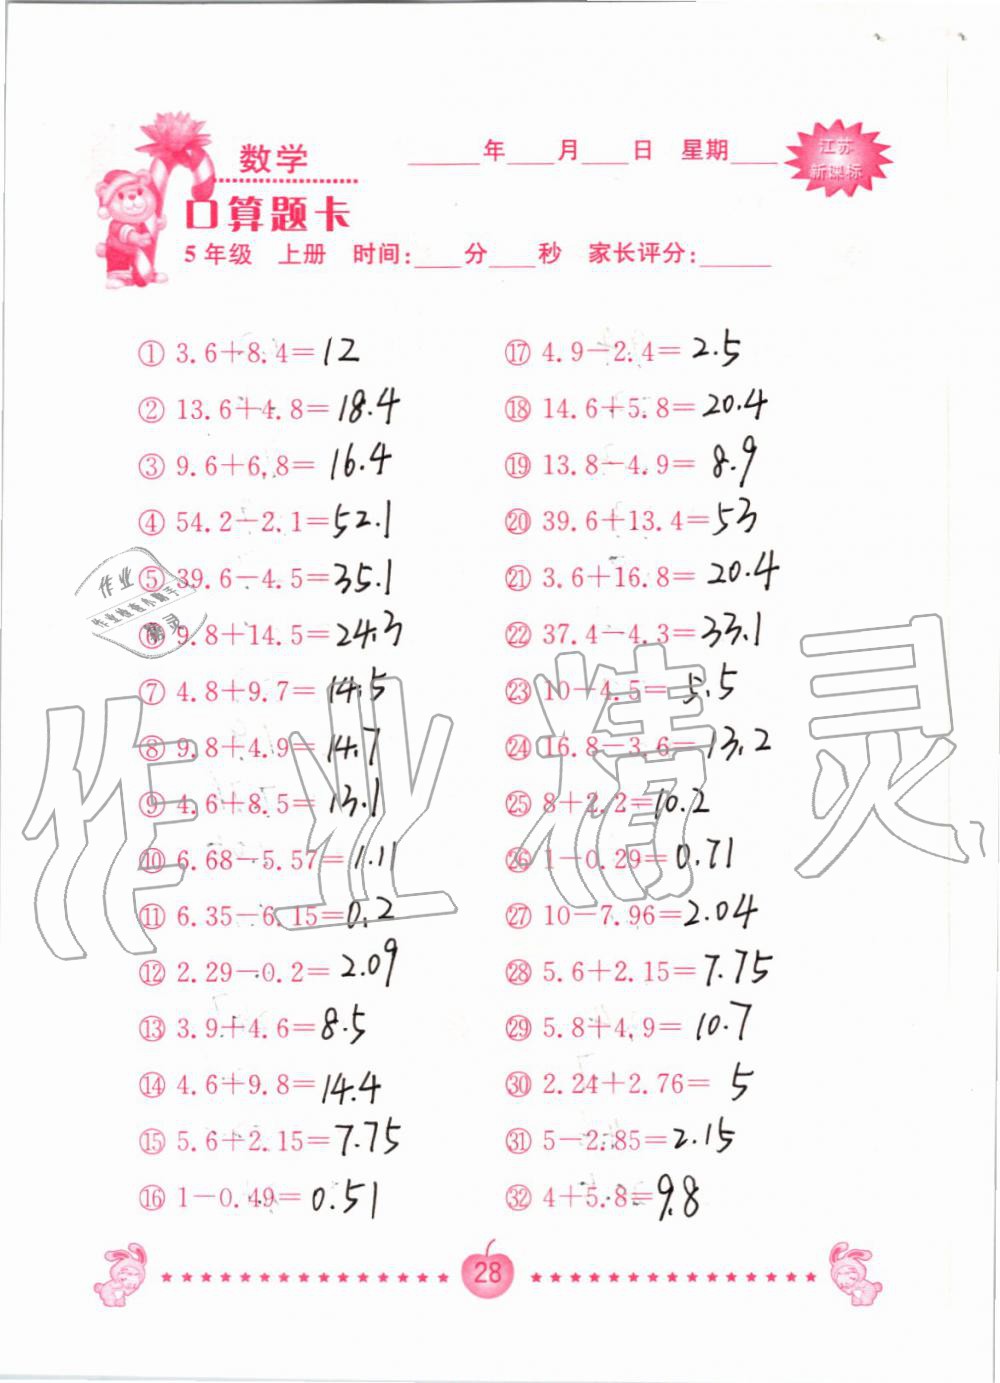 数学
____年____月____日 星期____
江苏
新课标
口算题卡
5年级 上册 时间:____分____秒 家长评分:______
① 3.6+8.4=12
② 13.6+4.8=18.4
③ 9.6+6.8=16.4
④ 54.2-2.1=52.1
⑤ 39.6-4.5=35.1
⑥ 9.8+14.5=24.3
⑦ 4.8+9.7=14.5
⑧ 9.8+4.9=14.7
⑨ 4.6+8.5=13.1
⑩ 6.68-5.57=1.11
⑪ 6.35-6.15=0.2
⑫ 2.29-0.2=2.09
⑬ 3.9+4.6=8.5
⑭ 4.6+9.8=14.4
⑮ 5.6+2.15=7.75
⑯ 1-0.49=0.51
⑰ 4.9-2.4=2.5
⑱ 14.6+5.8=20.4
⑲ 13.8-4.9=8.9
⑳ 39.6+13.4=53
㉑ 3.6+16.8=20.4
㉒ 37.4-4.3=33.1
㉓ 10-4.5=5.5
㉔ 16.8-3.6=13.2
㉕ 8+2.2=10.2
㉖ 1-0.29=0.71
㉗ 10-7.96=2.04
㉘ 5.6+2.15=7.75
㉙ 5.8+4.9=10.7
㉚ 2.24+2.76=5
㉛ 5-2.85=2.15
㉜ 4+5.8=9.8
作业
作业检查小帮手
精灵
作业精灵
28